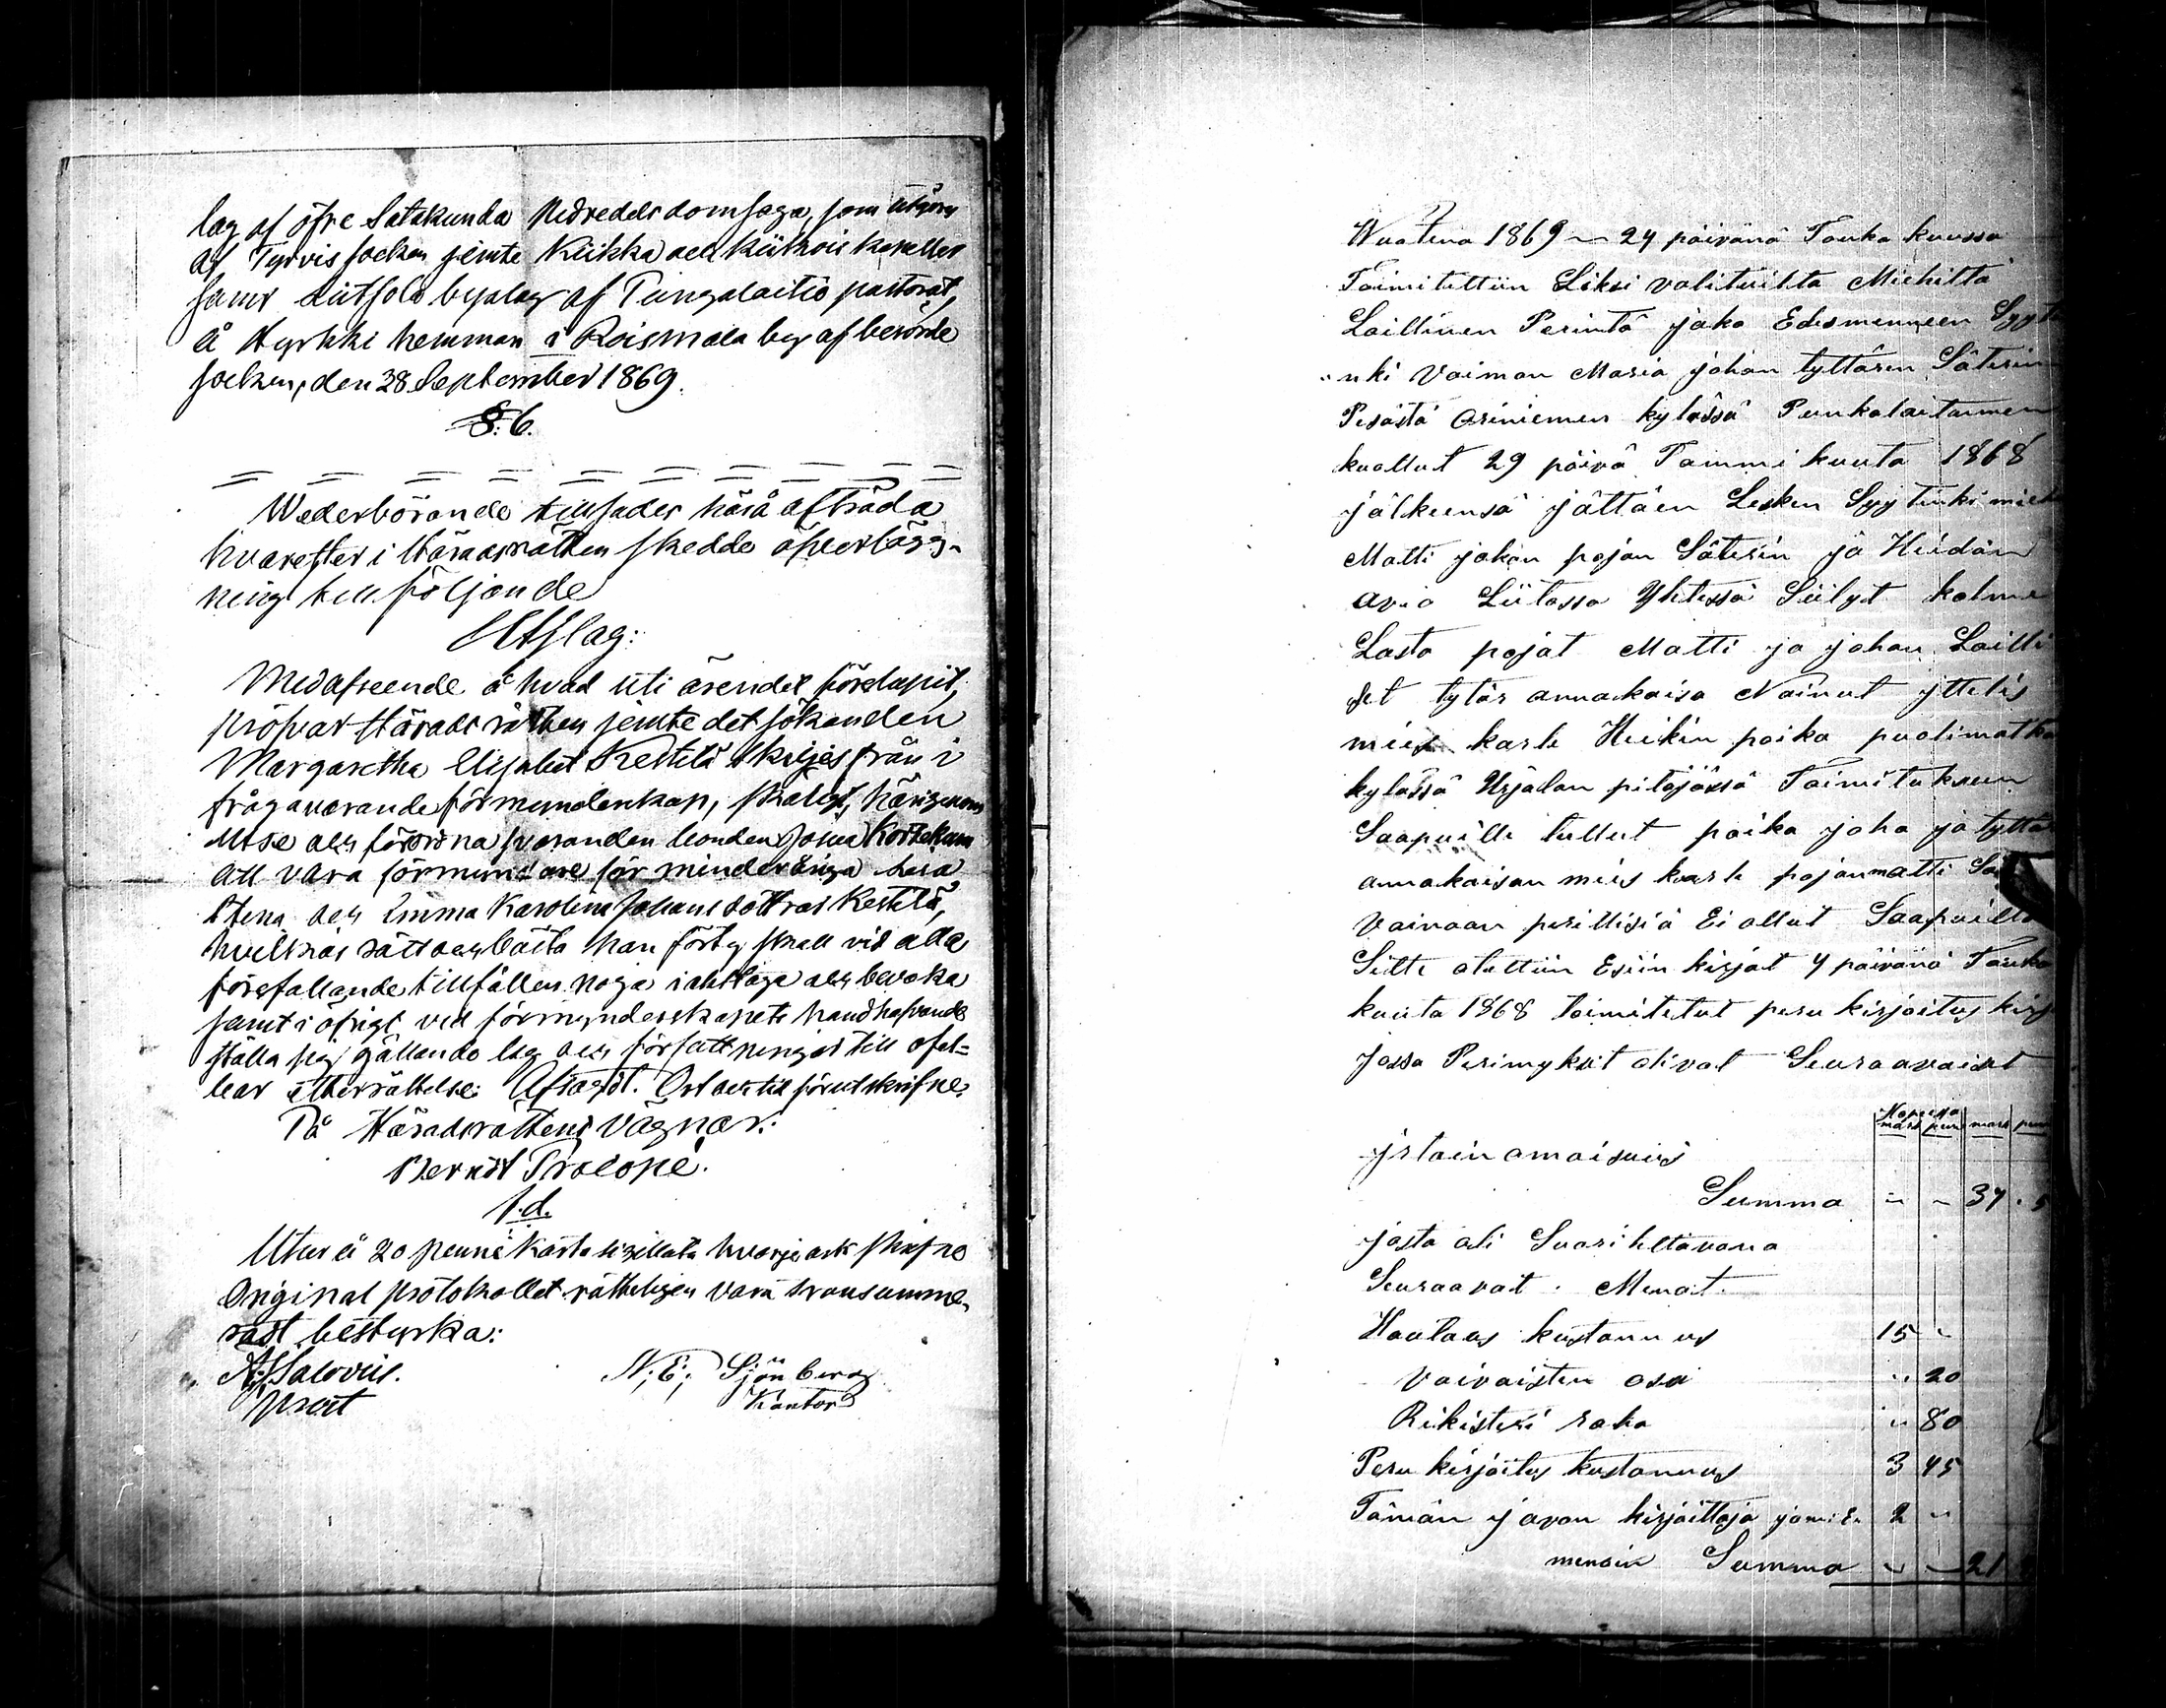 lag af öfre Satakunda Nedredels domsaga, som utgöres
af Tyrvis socken jemte Kiikka och Kiikois kapeller
samt Liitsola byalag af Pungalaitio pastorat,
å Hyrkki hemman i Roismala by af berörde
socken, den 28 September 1869.
§: 6.
Wederbörande tillsades härå afträda
hvarefter i Häradsrätten skedde öfverlägg-
ning till följande
Utslag:
Med afseende å hvad uti ärendet förelupit,
pröfvar Häradsrätten jemte det sökanden
Margaretha Elisabet Kettelä skiljes från i
fråga varande förmynderskap, skäligt, härigenom
utse och förordna svaranden bonden Josua
att vara förmyndare för minderåriga
Stena och Emma Karolina Johans döttrar Kettelä,
hvilkas rätt och bästa han förty skall vid alla
förefallande tillfällen noga iakttaga och bevaka
samt i öfrigt vid förmynderskapets handhafvande
ställa sig gällande lag och författningar till ofel-
bar efterrättelse. Afsagdt. Ort och tid förutskrifne.
På Häradsrättens Vägnar:
Berndt Procopé.
l.d.
Utur å 20 penni Karta sigillata hvarje ark skrifne
Original protokollet rätteligen vara transumme-
radt bestyrka:
N: E: Sjönberg
Kantor
Wuatena 1869 24 päivänä Touko kuussa
Toimitettiin Liksi valituilta Miehiltä
Laillinen Perintö jako Edesmenneen Syyt
nki Vaiman Maria Johan tyttären Säterin
Pesästä Oriniemen kylässä Punkalaitumen
kuollut 29 päivä Tammi kuuta 1868
jälkeensä jättäen Lesken Syytinki mieh
Matti johan pojan Säterin ja Heidän
avio Liitossa Yhtessä Siilyt kolme
Lasta pojat Matti ja johan Lailli
set tytär annakaisa Nainut yttelis
mies karle Heikin poika puolimatka
kylässä Urjalan pitäjässä Toimitukseen
Saapuille tullut poika joha ja tyttä
annakaisan mies karle pojan matti
Vainaan perillisiä Ei ollut Saapuilla
Sitte otettiin Esiin kirjat 4 päivänä Touko
kuuta 1868 toimitetut peru kirjoitus kirj
jossa Perimykset olivat Seuraavaiset
mark pen mark pen
jrtain omaisuus
Summa " " 37.5
josta oli Suoritettavana
Seuraavat Menot
Hautaus kustannus 15 "
Vaivaisten osa " 20
Rikisteri raha " 80
Peru kirjoitus kustannus 3 45
Tämän javon kirjoittaja 2 "
menoin Summa " " 21